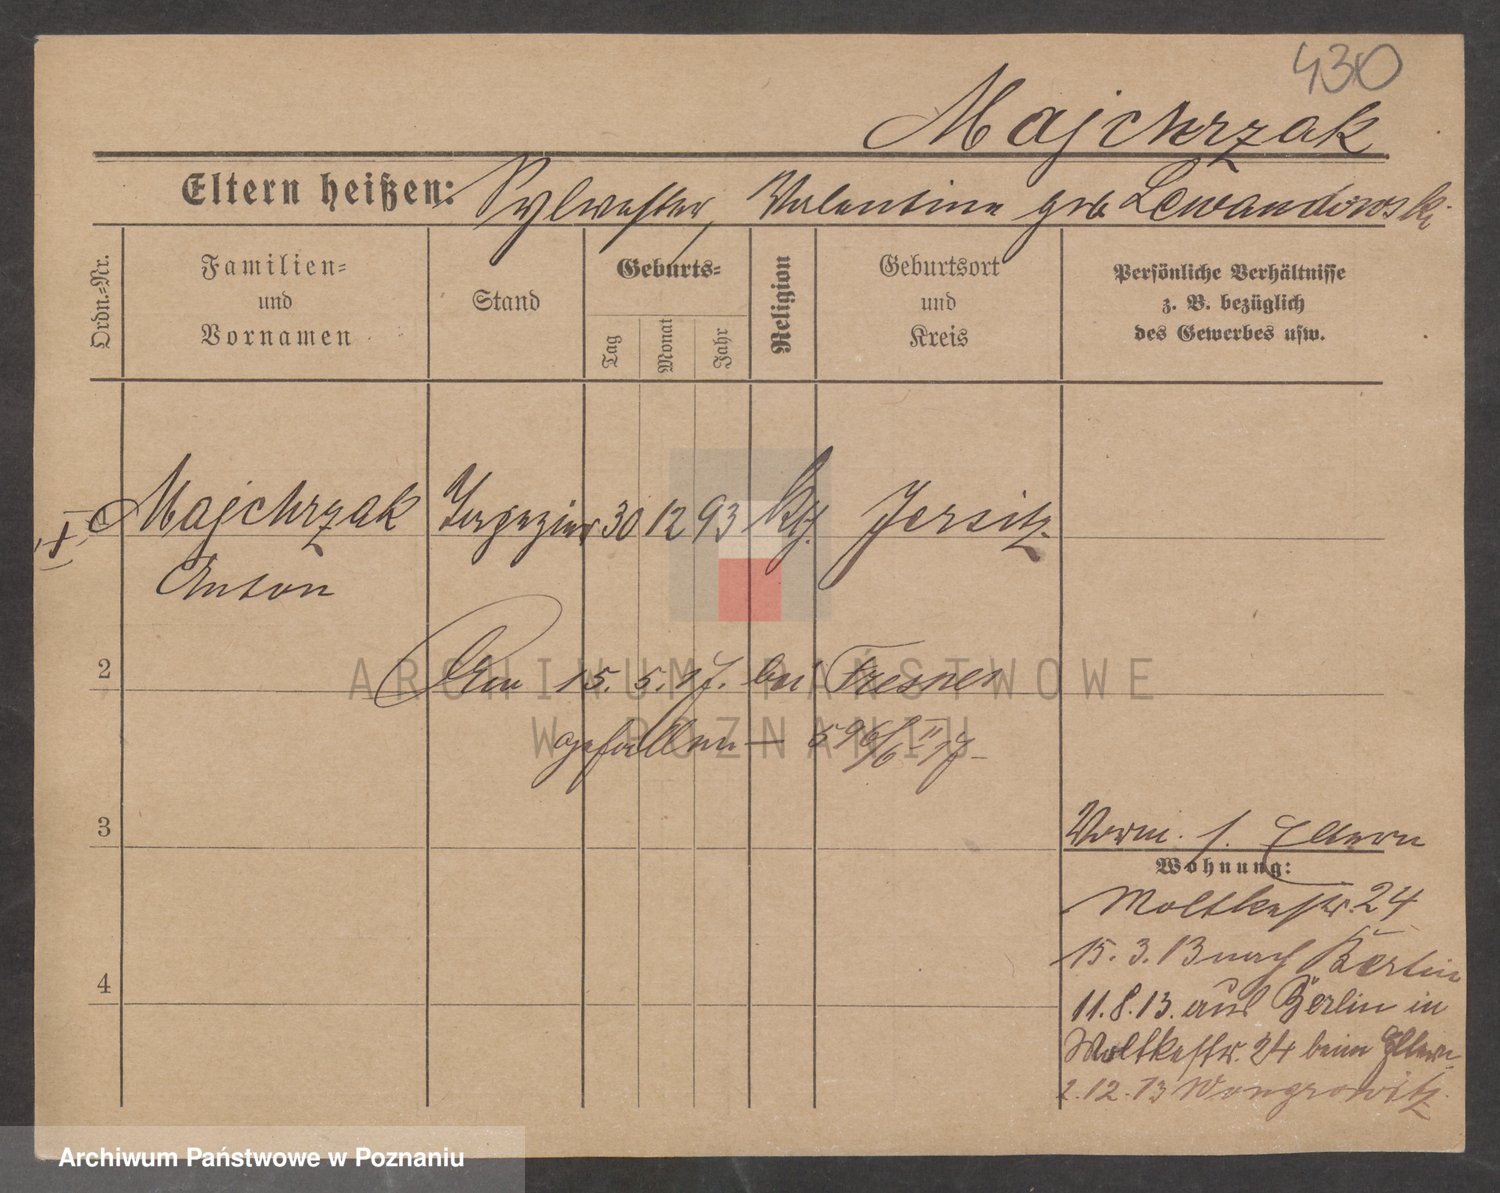 430
Majchrzak
Eltern heißen: Sylvester, Valentine geb Lewandowski
Ordn.-Nr.
Familien-
und
Vornamen
Stand
Geburts-
Tag
Monat
Jahr
Religion
Geburtsort
und
Kreis
Persönliche Verhältnisse
z. B. bezüglich
des Gewerbes usw.
Majchrzak Tapezier 30 12 93 kth. Jersitz
Anton
2
Am 15. 5. 17. bei Fresnes
gefallen — 596/6 II 17 —
3
Verm. s. Eltern
Wohnung:
Moltkestr. 24
15. 3. 13 nach Berlin
4
11. 8. 13. aus Berlin in
Moltkestr. 24 beim Eltern
2. 12. 13 Wongrowitz
ARCHIWUM PAŃSTWOWE
W POZNANIU
Archiwum Państwowe w Poznaniu